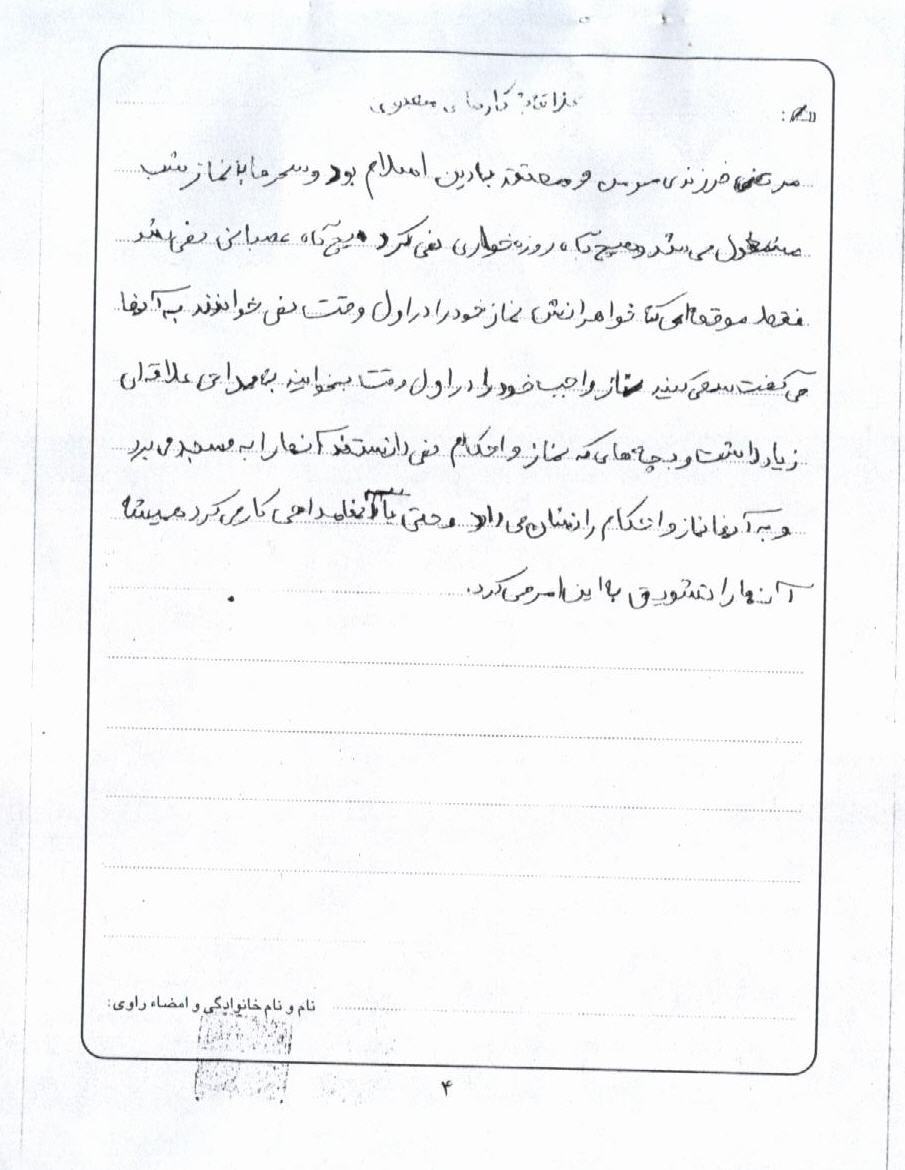 علاقه به کارهای معنوی
مرتضی فرزندی مومن و معتقد به دین اسلام بود و سحرها با نماز شب
مشغول می شد و هیچ گاه روزه خواری نمی کرد هیچ گاه عصبانی نمی شد
فقط موقعه ای که خواهرانش نماز خود را در اول وقت نمی خواندند به آنها
می گفت سعی کنید نماز واجب خود را در اول وقت بخوانید به مداحی علاقه ای
زیاد داشت و بچه های که نماز و احکام نمی دانستند آنها را به مسجد می برد
و به آنها نماز و احکام را نشان می داد و حتی با آنها مداحی کار می کرد همیشه
آنها را تشویق به این امر می کرد.
نام و نام خانوادگی و امضاء راوی:
۴